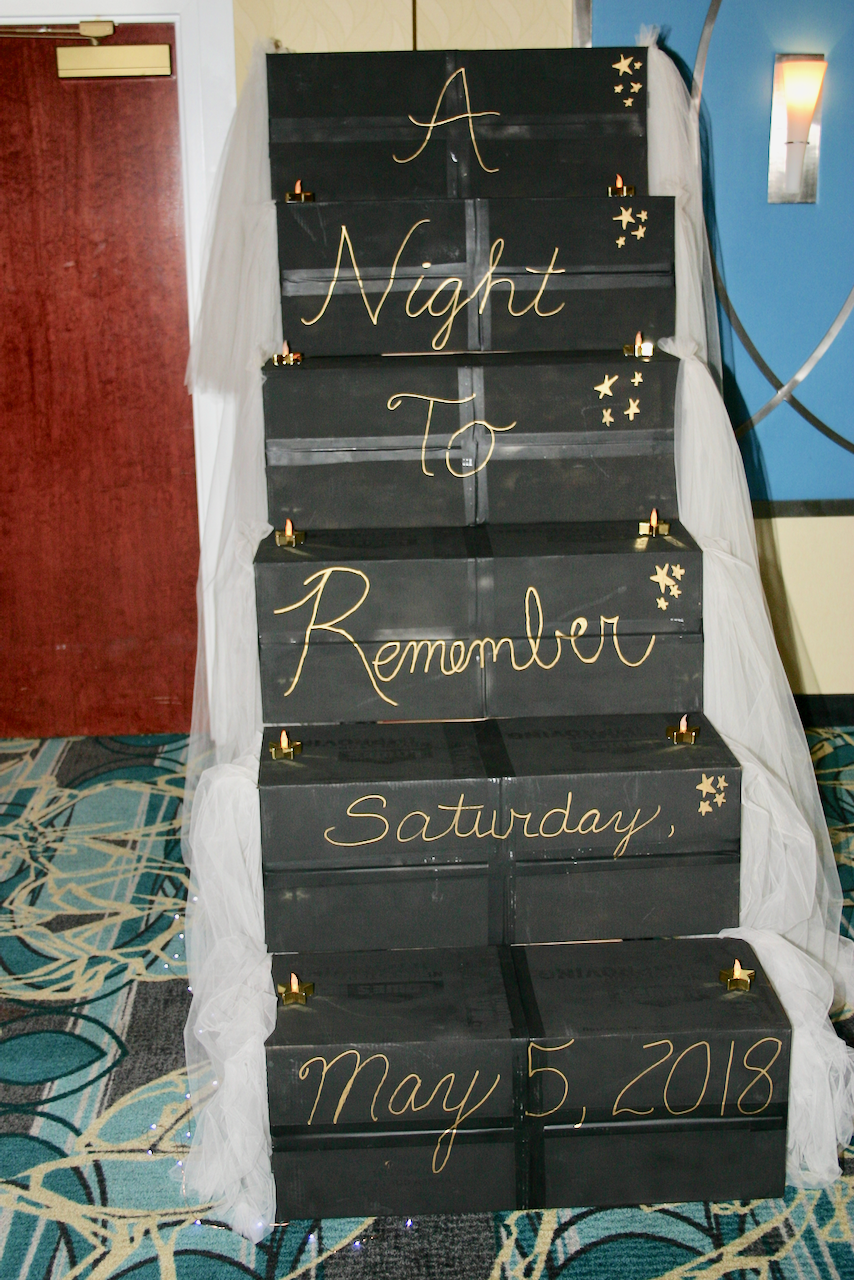 A
Night
To
Remember
Saturday,
May 5, 2018